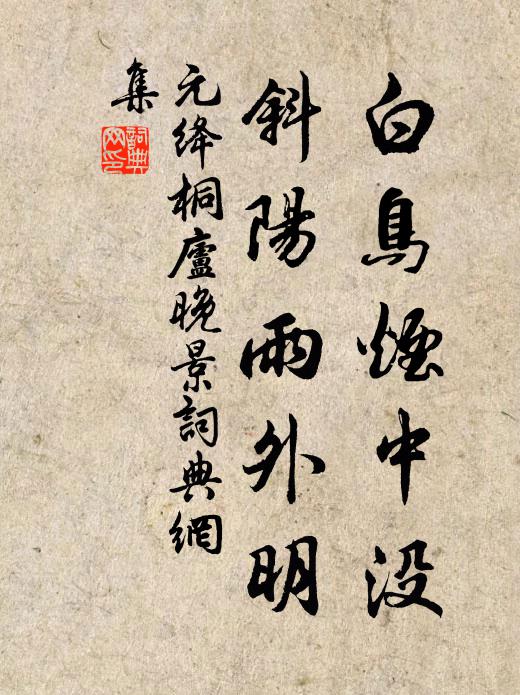 白鳥煙中没
斜陽雨外明
元絳桐廬晚景詞典網
集
詞典
网印